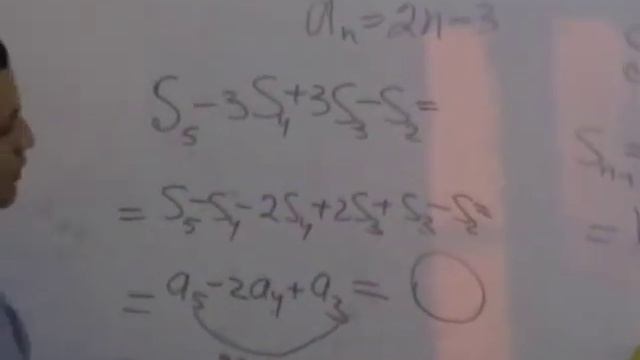 aₙ = 2n - 3
S₅ - 3S₄ + 3S₃ - S₂ =
= S₅ - S₄ - 2S₄ + 2S₃ + S₃ - S₂ =
= a₅ - 2a₄ + a₃ = 0
Sₙ₋₁ =
=